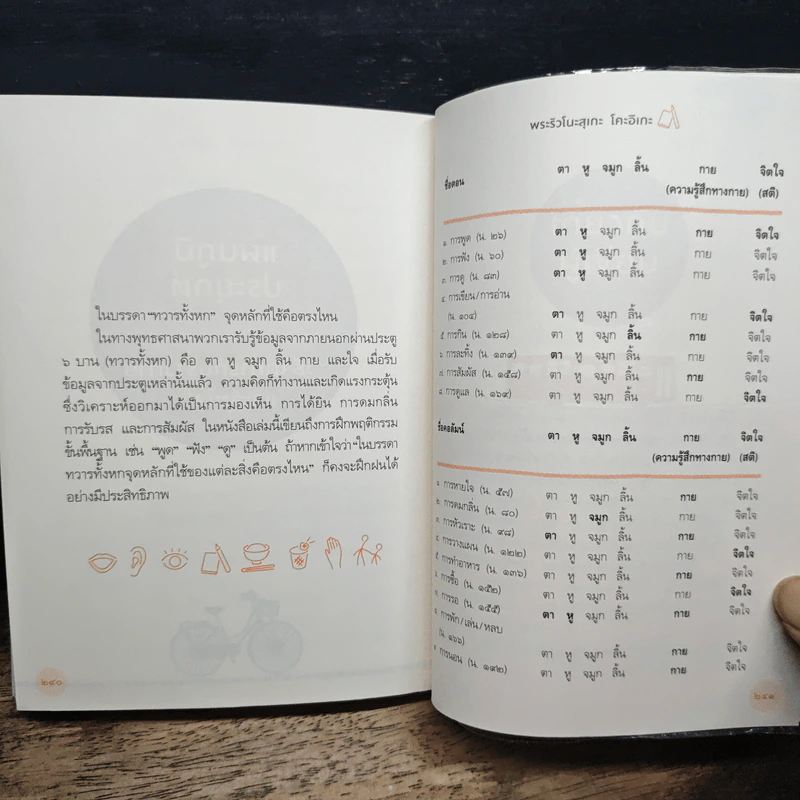 ในบรรดา "ทวารทั้งหก" จุดหลักที่ใช้คือตรงไหน
ในทางพุทธศาสนาพวกเรารับรู้ข้อมูลจากภายนอกผ่านประตู
๖ บาน (ทวารทั้งหก) คือ ตา หู จมูก ลิ้น กาย และใจ เมื่อรับ
ข้อมูลจากประตูเหล่านั้นแล้ว ความคิดก็ทำงานและเกิดแรงกระตุ้น
ซึ่งวิเคราะห์ออกมาได้เป็นการมองเห็น การได้ยิน การดมกลิ่น
การรับรส และการสัมผัส ในหนังสือเล่มนี้เขียนถึงการฝึกพฤติกรรม
ขั้นพื้นฐาน เช่น "พูด" "ฟัง" "ดู" เป็นต้น ถ้าหากเข้าใจว่า "ในบรรดา
ทวารทั้งหกจุดหลักที่ใช้ของแต่ละสิ่งคือตรงไหน" ก็คงจะฝึกฝนได้
อย่างมีประสิทธิภาพ
๒๔๐
พระริวโนะสุเกะ โคะอิเกะ
ชื่อตอน ตา หู จมูก ลิ้น กาย จิตใจ
(ความรู้สึกทางกาย) (สติ)
๑. การพูด (น. ๒๖) ตา หู จมูก ลิ้น กาย จิตใจ
๒. การฟัง (น. ๖๐) ตา หู จมูก ลิ้น กาย จิตใจ
๓. การดู (น. ๘๓) ตา หู จมูก ลิ้น กาย จิตใจ
๔. การเขียน/การอ่าน
(น. ๑๐๔) ตา หู จมูก ลิ้น กาย จิตใจ
๕. การกิน (น. ๑๒๘) ตา หู จมูก ลิ้น กาย จิตใจ
๖. การละทิ้ง (น. ๑๓๙) ตา หู จมูก ลิ้น กาย จิตใจ
๗. การสัมผัส (น. ๑๕๘) ตา หู จมูก ลิ้น กาย จิตใจ
๘. การดูแล (น. ๑๖๙) ตา หู จมูก ลิ้น กาย จิตใจ
ชื่อคอลัมน์ ตา หู จมูก ลิ้น กาย จิตใจ
(ความรู้สึกทางกาย) (สติ)
๑. การหายใจ (น. ๕๗) ตา หู จมูก ลิ้น กาย จิตใจ
๒. การดมกลิ่น (น. ๘๐) ตา หู จมูก ลิ้น กาย จิตใจ
๓. การหัวเราะ (น. ๙๘) ตา หู จมูก ลิ้น กาย จิตใจ
๔. การวางแผน (น. ๑๒๒) ตา หู จมูก ลิ้น กาย จิตใจ
๕. การทำอาหาร (น. ๑๓๖) ตา หู จมูก ลิ้น กาย จิตใจ
การซื้อ (น. ๑๕๒) ตา หู จมูก ลิ้น กาย จิตใจ
การรอ (น. ๑๕๕) ตา หู จมูก ลิ้น กาย จิตใจ
การพัก/เล่น/หลบ
(น. ๑๖๖) ตา หู จมูก ลิ้น กาย จิตใจ
การนอน (น. ๑๙๒) ตา หู จมูก ลิ้น กาย จิตใจ
๒๔๑